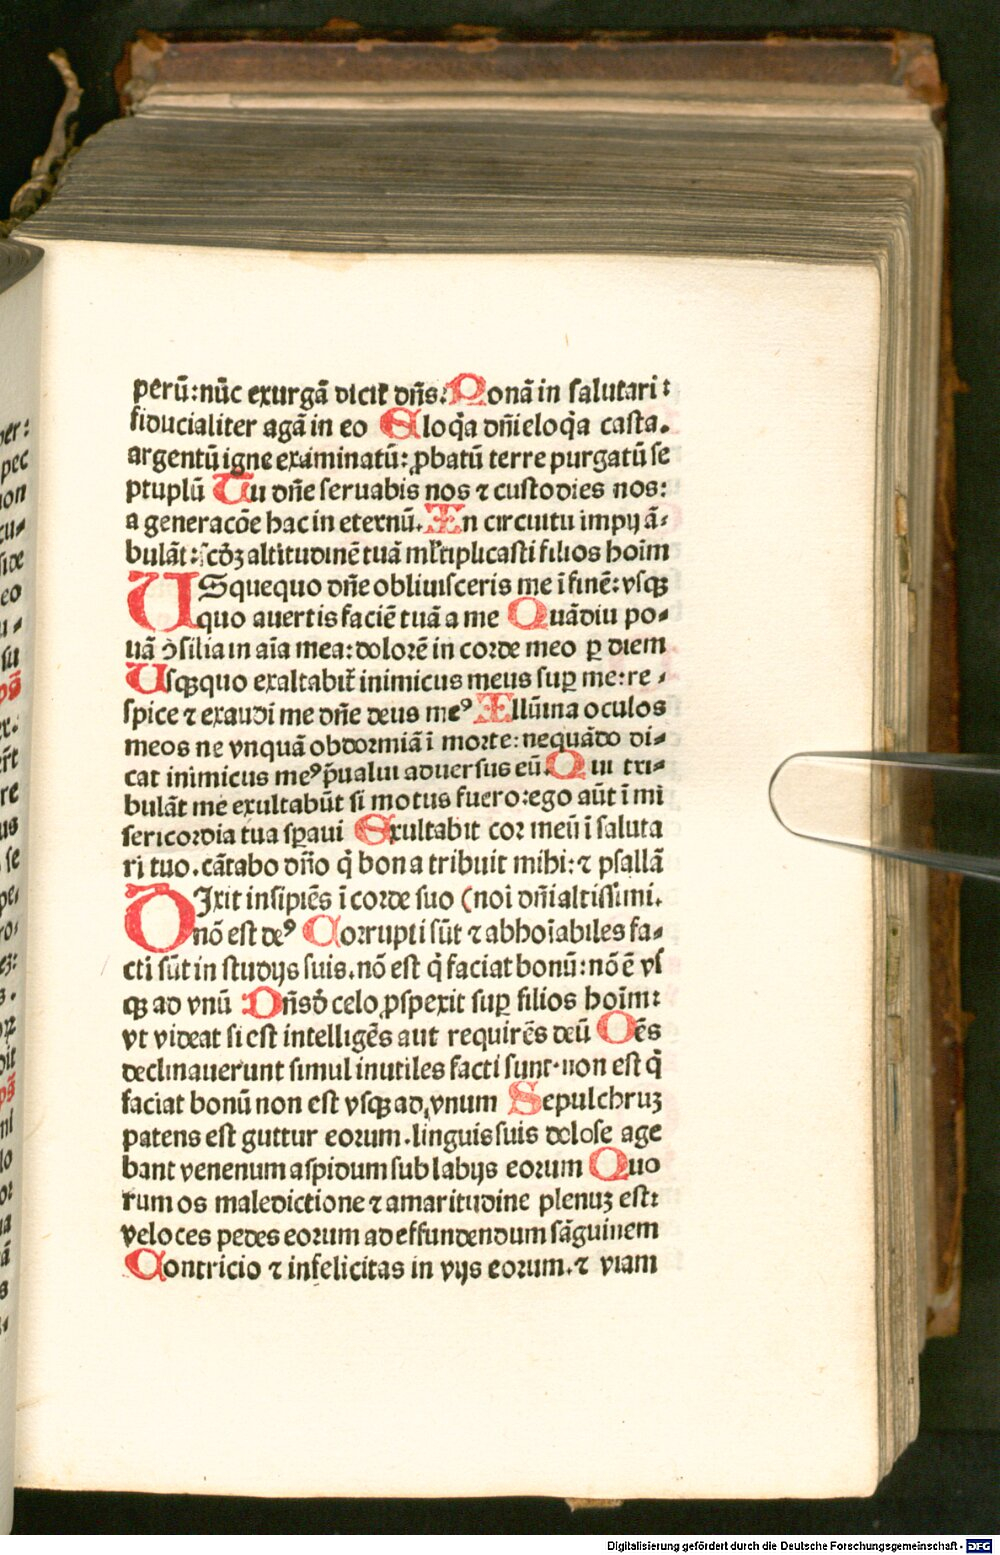 perū: nūc exurgā dicit dn̄s. Ponā in salutari:
fiducialiter agā in eo Eloq̄a dn̄i eloq̄a casta.
argentū igne examinatū: ꝓbatū terre purgatū se
ptuplū Tu dn̄e seruabis nos ⁊ custodies nos:
a generacōe hac in eternū. In circuitu impij ā⸗
bulāt: scd̄ꝫ altitudinē tuā ml̄tiplicasti filios hoīm
USquequo dn̄e obliuisceris me ī finē: vsqꝫ
quo auertis faciē tuā a me Quādiu po⸗
nā ꝯsilia in aīa mea: dolorē in corde meo ꝑ diem
Usqꝫquo exaltabit̄ inimicus meus suꝑ me: re⸗
spice ⁊ exaudi me dn̄e deus meꝰ Illūina oculos
meos ne vnquā obdormiā ī morte: nequādo di⸗
cat inimicus meꝰ p̄ualui aduersus eū. Qui tri⸗
bulāt me exultabūt si motus fuero: ego aūt ī mi
sericordia tua sꝑaui Exultabit cor meū ī saluta
ri tuo. cātabo dn̄o q̄ bona tribuit mihi: ⁊ psallā
DIxit insipiēs ī corde suo (noī dn̄i altissimi.
nō est deꝰ Corrupti sūt ⁊ abhoīabiles fa⸗
cti sūt in studijs suis. nō est q̄ faciat bonū: nō ē vs
qꝫ ad vnū Dn̄s d̄ celo ꝓspexit suꝑ filios hoīm:
vt videat si est intelligēs aut requirēs deū Oēs
declinauerunt simul inutiles facti sunt. non est q̄
faciat bonū non est vsqꝫ ad vnum Sepulchruꝫ
patens est guttur eorum. linguis suis dolose age
bant venenum aspidum sub labijs eorum Quo
rum os maledictione ⁊ amaritudine plenuꝫ est:
veloces pedes eorum ad effundendum sāguinem
Contricio ⁊ infelicitas in vijs eorum. ⁊ viam
Digitalisierung gefördert durch die Deutsche Forschungsgemeinschaft - DFG